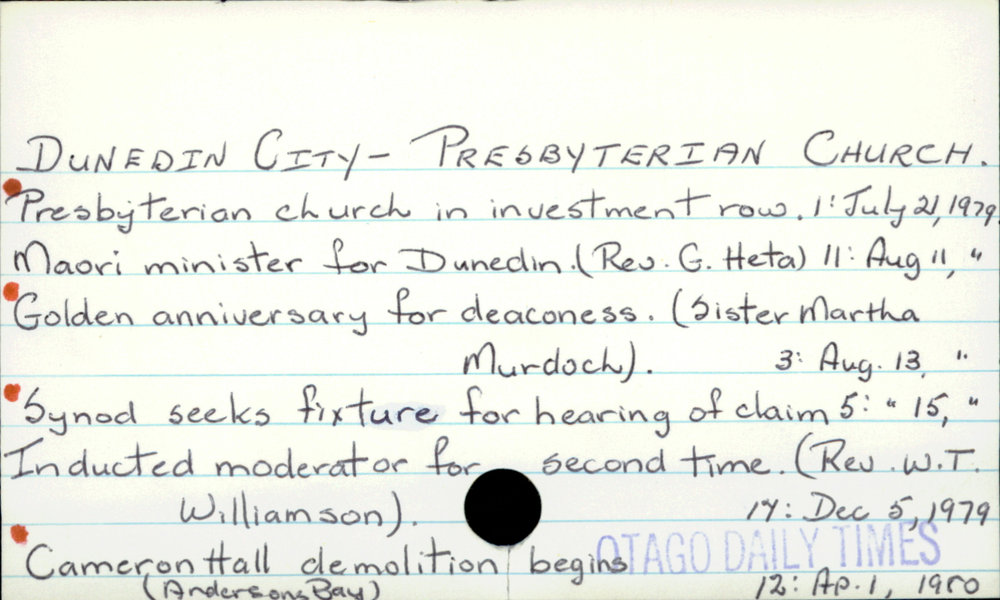 DUNEDIN CITY- PRESBYTERIAN CHURCH.
Presbyterian church in investment row. 1: July 21, 1979
Maori minister for Dunedin. (Rev. G. Heta) 11: Aug 11, "
Golden anniversary for deaconess. (Sister Martha
Murdoch). 3: Aug. 13, "
Synod seeks fixture for hearing of claim 5: " 15, "
Inducted moderator for second time. (Rev. W.T.
Williamson). 14: Dec 5, 1979
Cameron Hall demolition begins OTAGO DAILY TIMES
(Andersons Bay) 12: Ap. 1, 1980